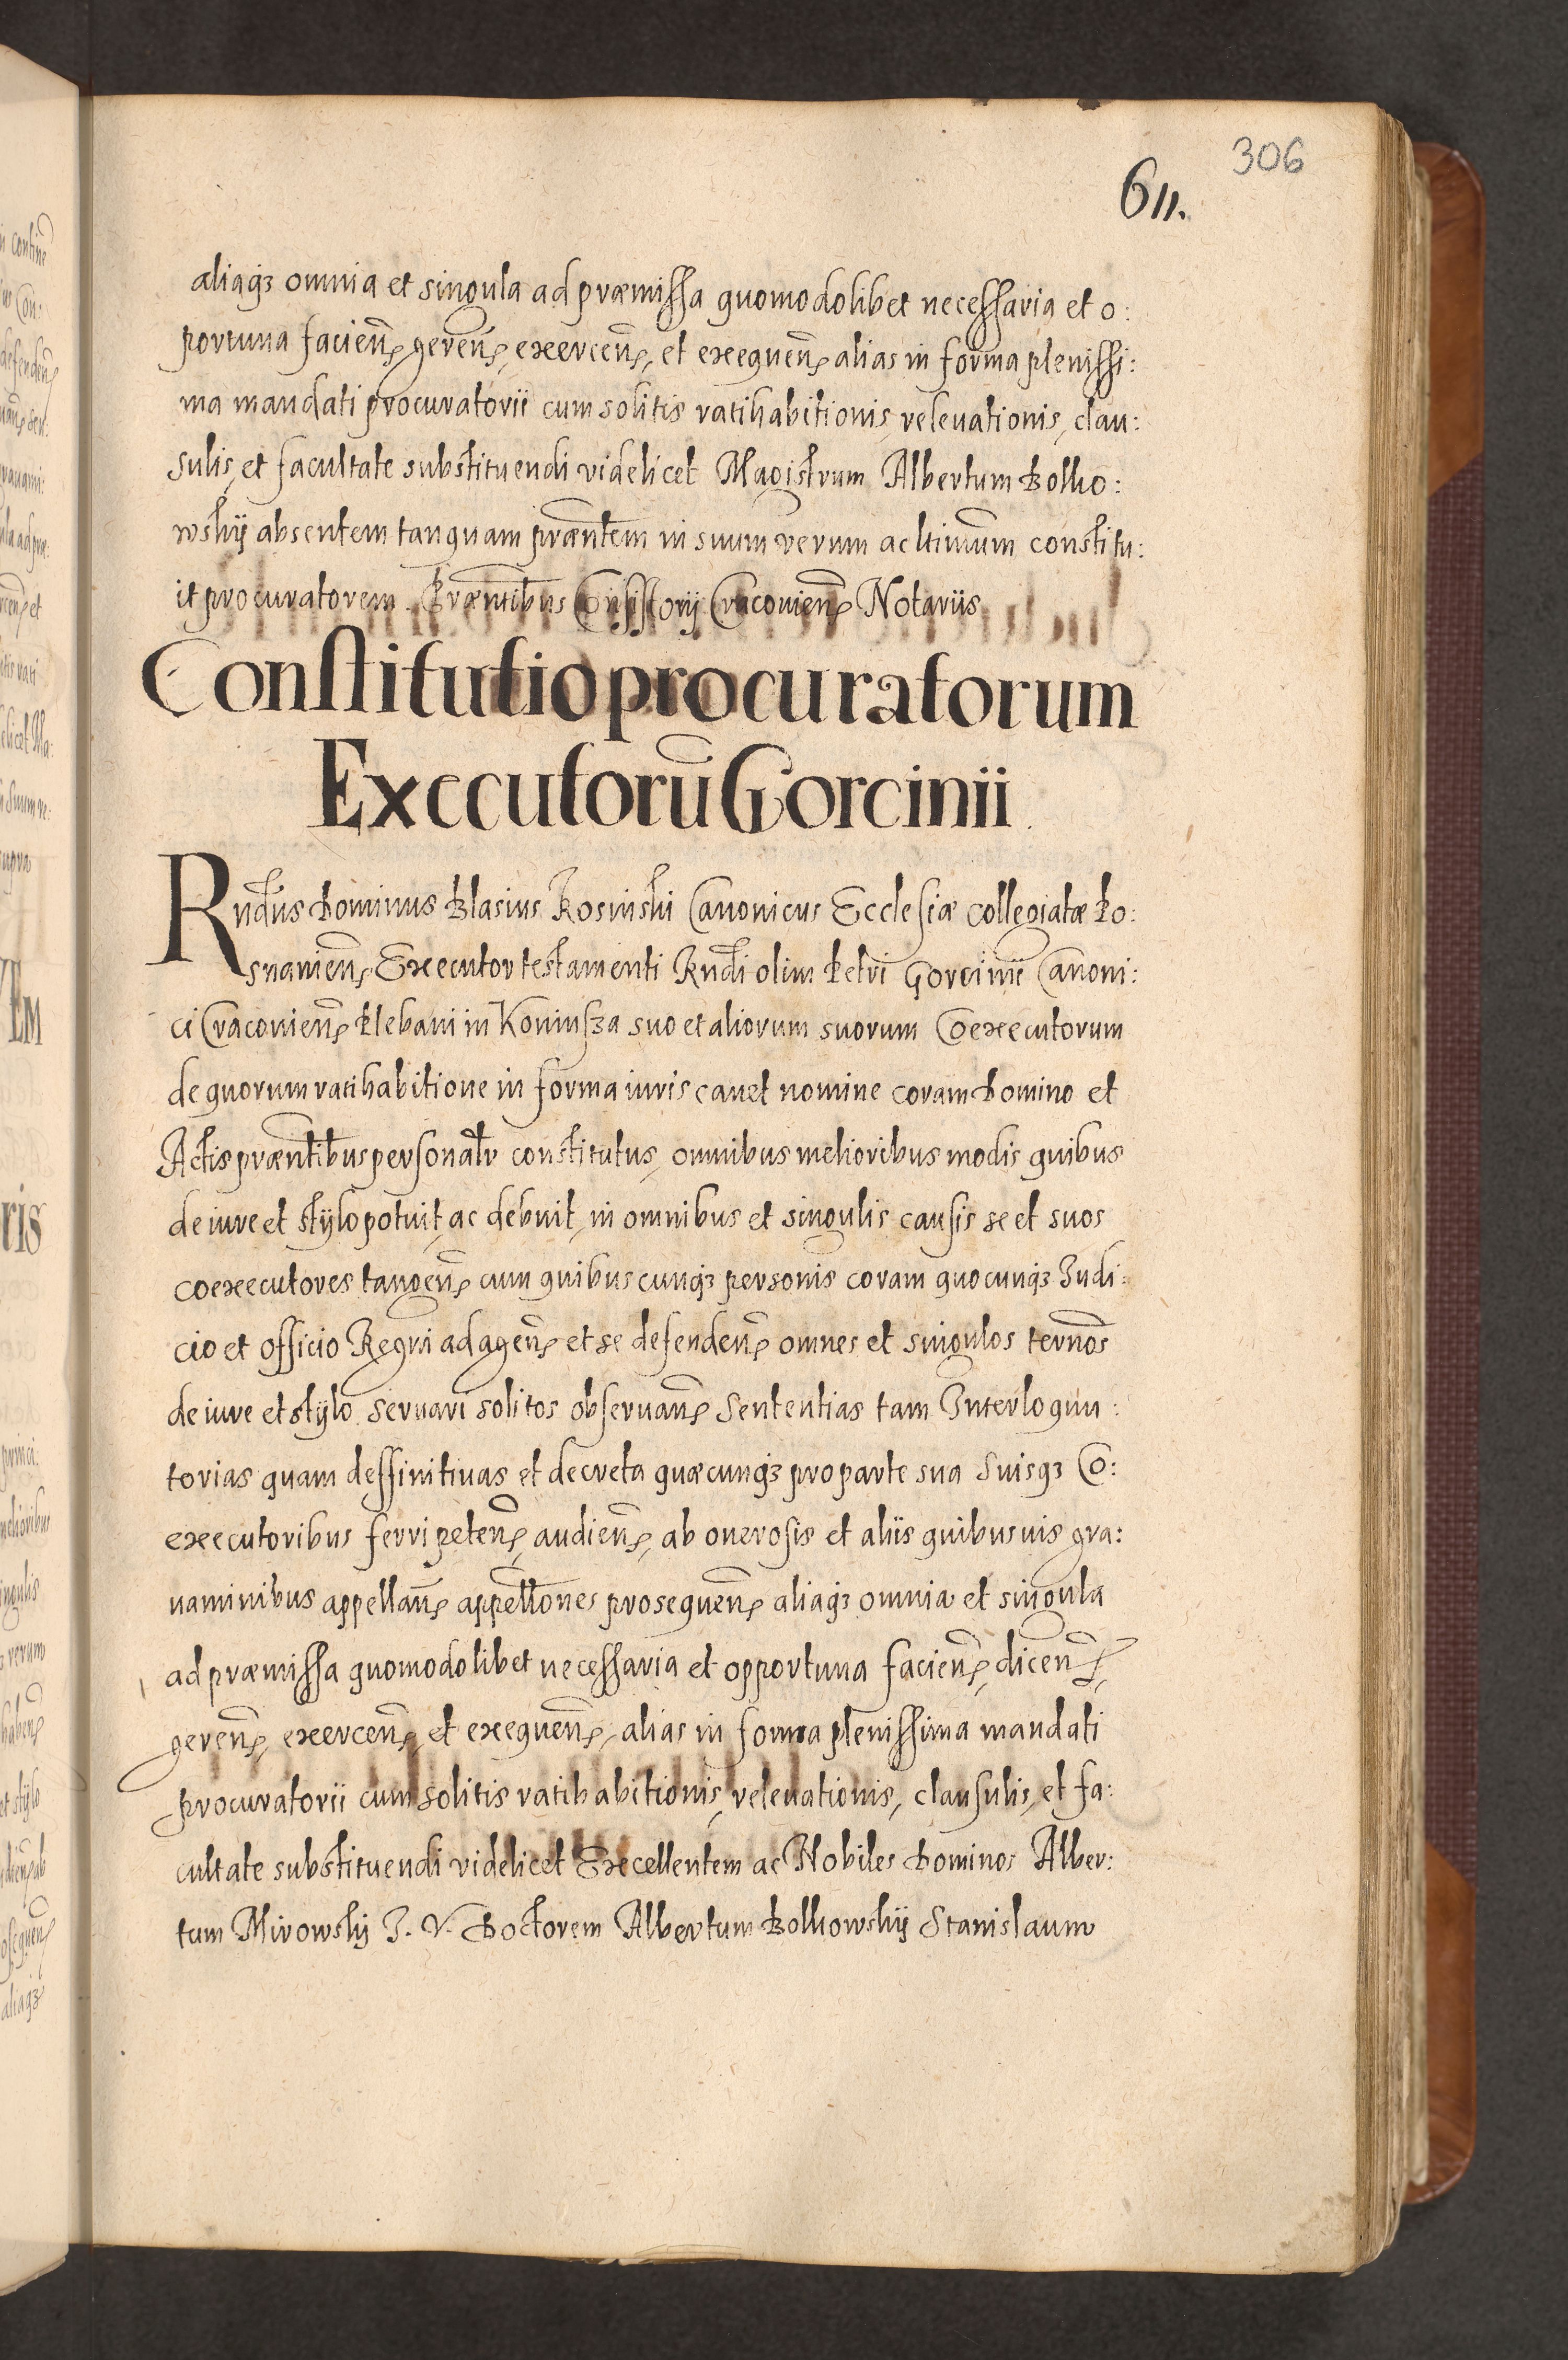 306
611.
aliaq3 omnia et singula ad præmissa quomodolibet necessaria et o:
portuna facien̄, geren̄, exercen̄, et exequen̄, alias in forma plenissi:
ma mandati procuratorii cum solitis ratihabitionis, releuationis, clau:
sulis, et facultate substituendi videlicet Magistrum Albertum Bolko:
wskÿ absentem tanquam præñtem in suum verum ac ltimūm constitu:
it procuratorem. Præñtibus Consistorij Cracouien̄ Notariis
Constitutio procuratorum
Executorū Gorcinii
Rndus Dominus Blasius Kosinski Canonicus Ecclesiæ Collegiatæ Po:
snanien̄, Executor testamenti Rndi olim Petri Gorcinii Canoni:
ci Cracouien̄, Plebani in Koniusza suo et aliorum suorum Coexecutorum
de quorum ratihabitione in forma iuris cauet nomine coram Domino et
Actis præñtibus personalr constitutus, omnibus melioribus modis quibus
de iure et stÿlo potuit, ac debuit, in omnibus et singulis causis se et suos
coexecutores tangen̄, cum quibuscunq3 personis coram quocunq3 Judi:
cio et officio Regni ad agen̄, et se defenden̄, omnes et singulos terños
de iure et stÿlo seruari solitos obseruan̄, Sententias tam Interloquu:
torias quam deffinitiuas et decreta quæcunq3 pro parte sua Suisq3 Co:
executoribus ferri peten̄, audien̄, ab onerosis et aliis quibusuis gra:
uaminibus appellan̄, appellōnes prosequen̄, aliaq3 omnia et singula
ad præmissa quomodolibet necessaria et opportuna facien̄, dicen̄,
geren̄, exercen̄, et exequen̄, alias in forma plenissima mandati
procuratorii cum solitis ratihabitionis, releuationis, clausulis, et fa:
cultate substituendi videlicet Excellentem ac Nobiles Dominos Alber:
tum Mirowskj J. V. Doctorem Albertum Bolkowskÿ Stanislaum